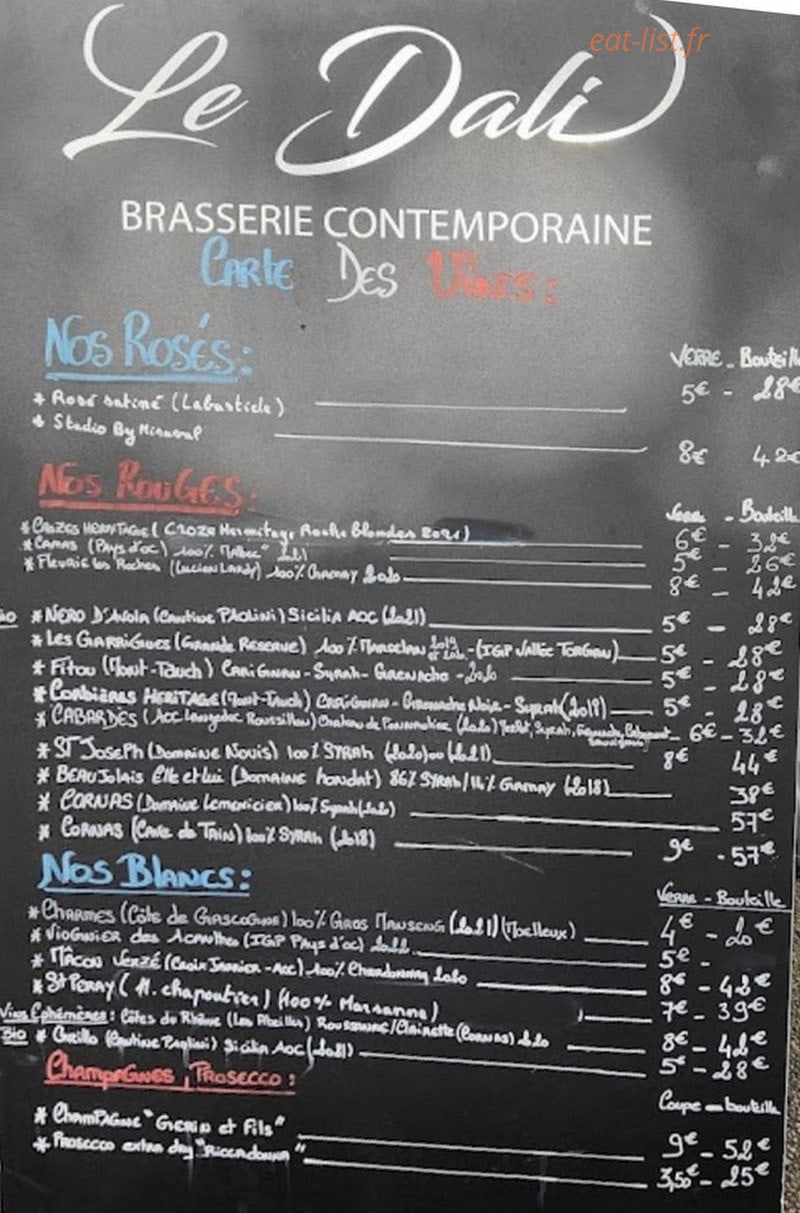 eat-list.fr
Le Dali
BRASSERIE CONTEMPORAINE
CARTE DES Vins:
NOS ROSÉS:
VERRE - Bouteill
* Rosé satiné (Labastide) 5€ - 28€
* Studio By Miraval 8€ 42€
NOS ROUGES:
Verre - Bouteille
* CROZES HERMITAGE (CROZE Hermitage Roche Blondes 2021) 6€ - 32€
* CAMAS (Pays d'oc) 100% Malbec 2021 5€ - 26€
* FLEURIE les Roches (Lucien Lardy) 100% GAMAY 2020 8€ - 42€
BIO * NERO D'AVOLA (Cantine PAOLINI) SICILIA AOC (2021) 5€ - 28€
* Les GARRIGUES (GRANDE RESERVE) 100% MARSELAN 2019 et 2020 - (IGP Vallée TORGAN) 5€ - 28€
* Fitou (Mont-Tauch) CARIGNAN - Syrah - Grenache - 2020 5€ - 28€
* Corbières HERITAGE (Mont-Tauch) CARIGNAN - Grenache Noir - Syrah (2018) 5€ - 28€
* CABARDÈS (Aoc Languedoc Roussillon) Chateau de (2020) Merlot, Syrah, Grenache, Cabernet Sauvignon 6€ - 32€
* ST JOSEPH (Domaine Nouis) 100% SYRAH (2020) ou (2021) 8€ 44€
* BEAUJOLAIS Elle et lui (DOMAINE hondat) 86% SYRAH/14% GAMAY (2018) 38€
* CORNAS (Domaine Lemenicier) 100% Syrah (2020) 57€
* CORNAS (CAVE de TAIN) 100% SYRAH (2018) 9€ - 57€
NOS BLANCS:
VERRE - Bouteille
* CHARMES (Côte de GASCOGNE) 100% GROS MANSENG (2021) (Moelleux) 4€ - 20€
* VIOGNIER des Acanthes (IGP Pays d'oc) 2022 5€ -
* MÂCON VERZÉ (Croix Jarrier - Aoc) 100% Chardonnay 2020 8€ - 42€
* St PERAY (M. chapoutier) (100% Marsanne) 7€ - 39€
Vins Ephémères: Côtes du Rhône (Les Abeilles) ROUSSANNE/Clairette (CORNAS) 2020 8€ - 42€
BIO * Grillo (Cantine Paolini) Sicilia AOC (2021) 5€ - 28€
CHAMPAGNES, PROSECCO:
Coupe - bouteille
* CHAMPAGNE "GUERIN et Fils" 9€ - 52€
* PROSECCO extra dry "RICCADONNA" 3,50€ - 25€